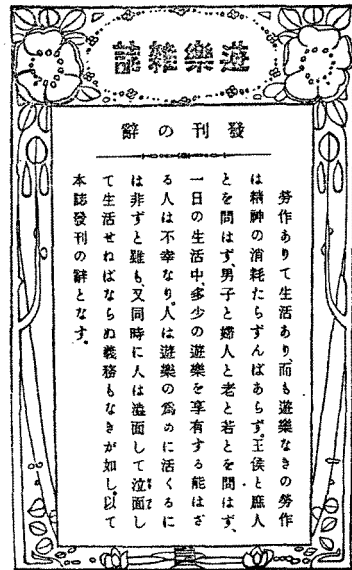 遊樂雜誌
發刊の辭
勞作ありて生活あり、而も遊樂なきの勞作
は精神の消耗たらずんばあらず。王侯と庶人
とを問はず、男子と婦人と老と若とを問はず、
一日の生活中、多少の遊樂を享有する能はざ
る人は不幸なり。人は遊樂の爲めに活くるに
は非ずと雖も、又同時に人は澁面して泣面し
て生活せねばならぬ義務もなきが如し。以て
本誌發刊の辭となす。